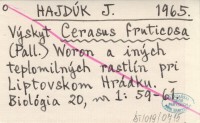 HAJDÚK J. 1965.
Výskyt Cerasus fruticosa
(Pall.) Woron a iných
teplomilných rastlín pri
Liptovskom Hrádku. –
Biológia 20, nr 1: 59-61.